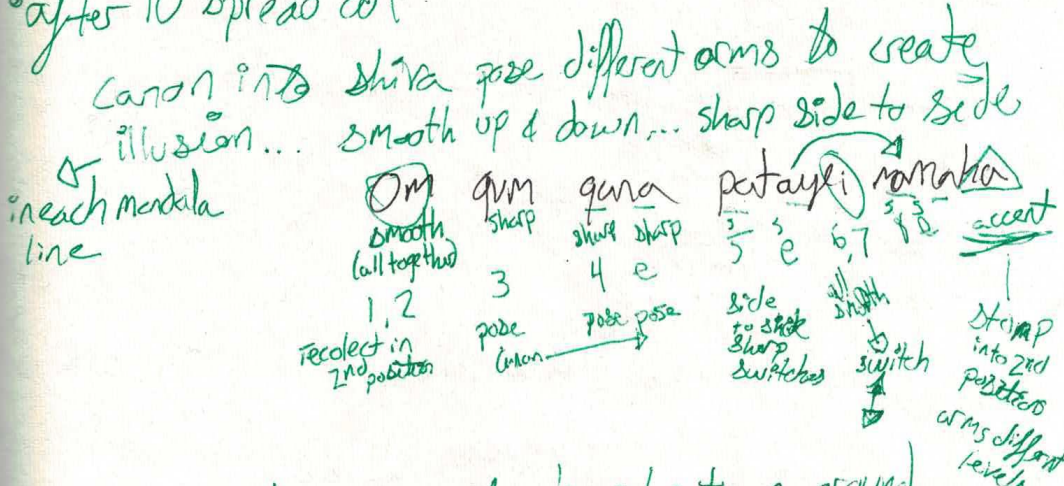 after 10 spread out
Canon into shiva pose different arms to create
illusion... smooth up & down... sharp side to side
in each mandala
line
Om gum gana patayei namaha
smooth sharp sharp sharp s s s s accent
(all together)
1, 2 3 4 e 5 e 6, 7 8
recolect in
2nd position
pose pose pose
Canon
side
to side
sharp
switches
all
smooth
switch
stomp
into 2nd
position
arms different
levels
around